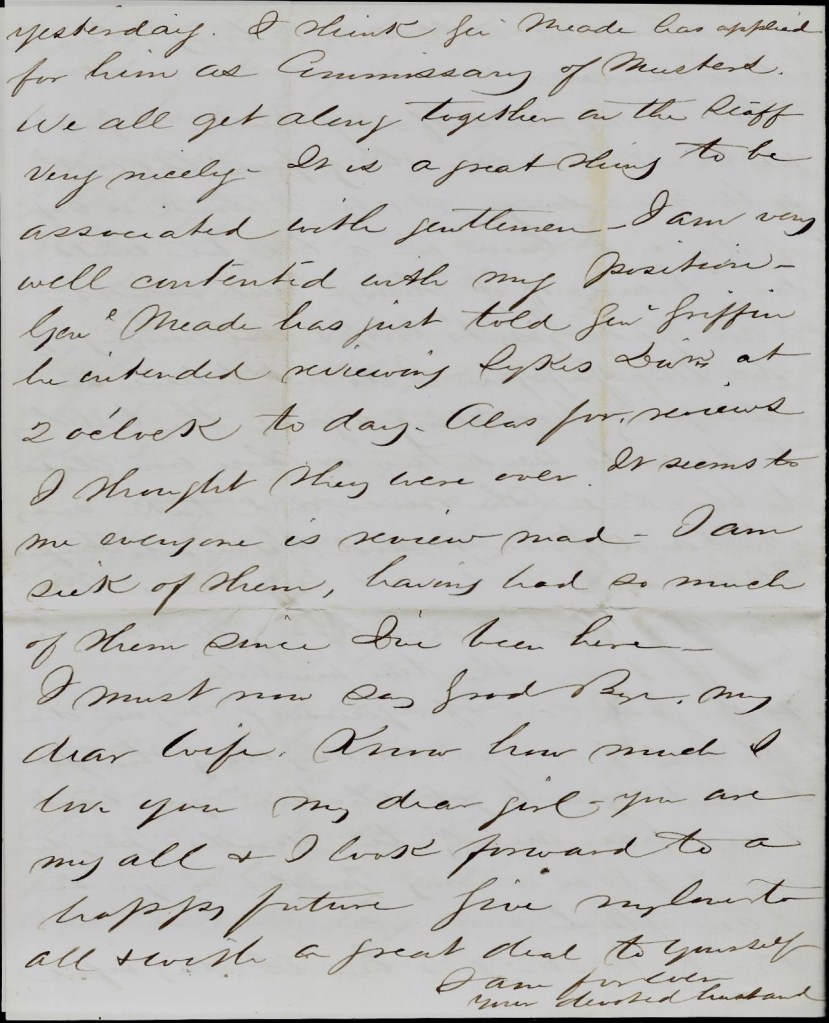 yesterday. I think Gen Meade has applied
for him as Commissary of Musters.
We all get along together on the Staff
very nicely - It is a great thing to be
associated with gentlemen - I am very
well contented with my position -
Gen^l Meade has just told Gen^l Griffin
he intended reviewing Sykes Div^n at
2 o'clock to day - Alas for reviews
I thought they were over. It seems to
me everyone is review mad - I am
sick of them, having had so much
of them since I've been here -
I must now say Good Bye, my
dear wife. Know how much I
love you my dear girl - you are
my all & I look forward to a
happy future Give my love to
all & with a great deal to yourself
I am forever
your devoted husband